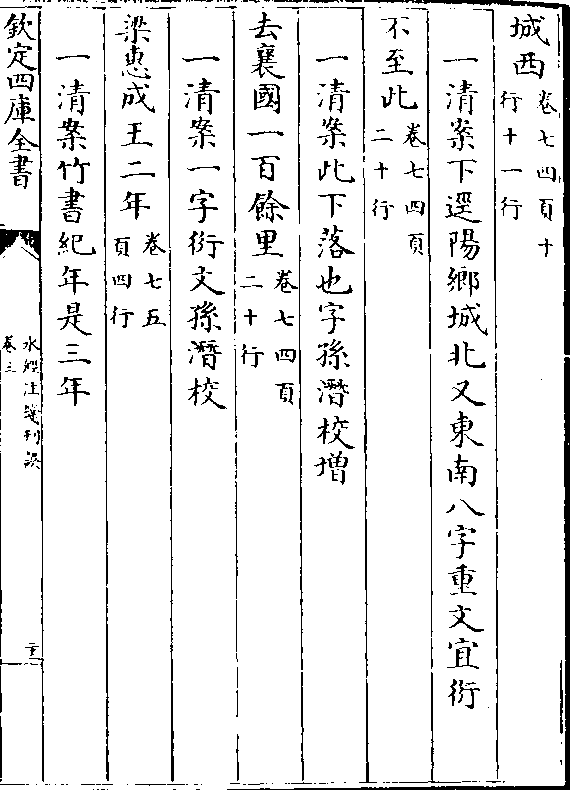 城西卷七四頁十行十一行
一清案下逕陽鄉城北又東南八字重文宜衍
不至此卷七四頁二十行
一清案此下落也字孫潛校增
去襄國一百餘里卷七四頁二十行
一清案一字衍文孫潛校
梁惠成王二年卷七五頁四行
一清案竹書紀年是三年
欽定四庫全書
水經注箋刊誤
卷三